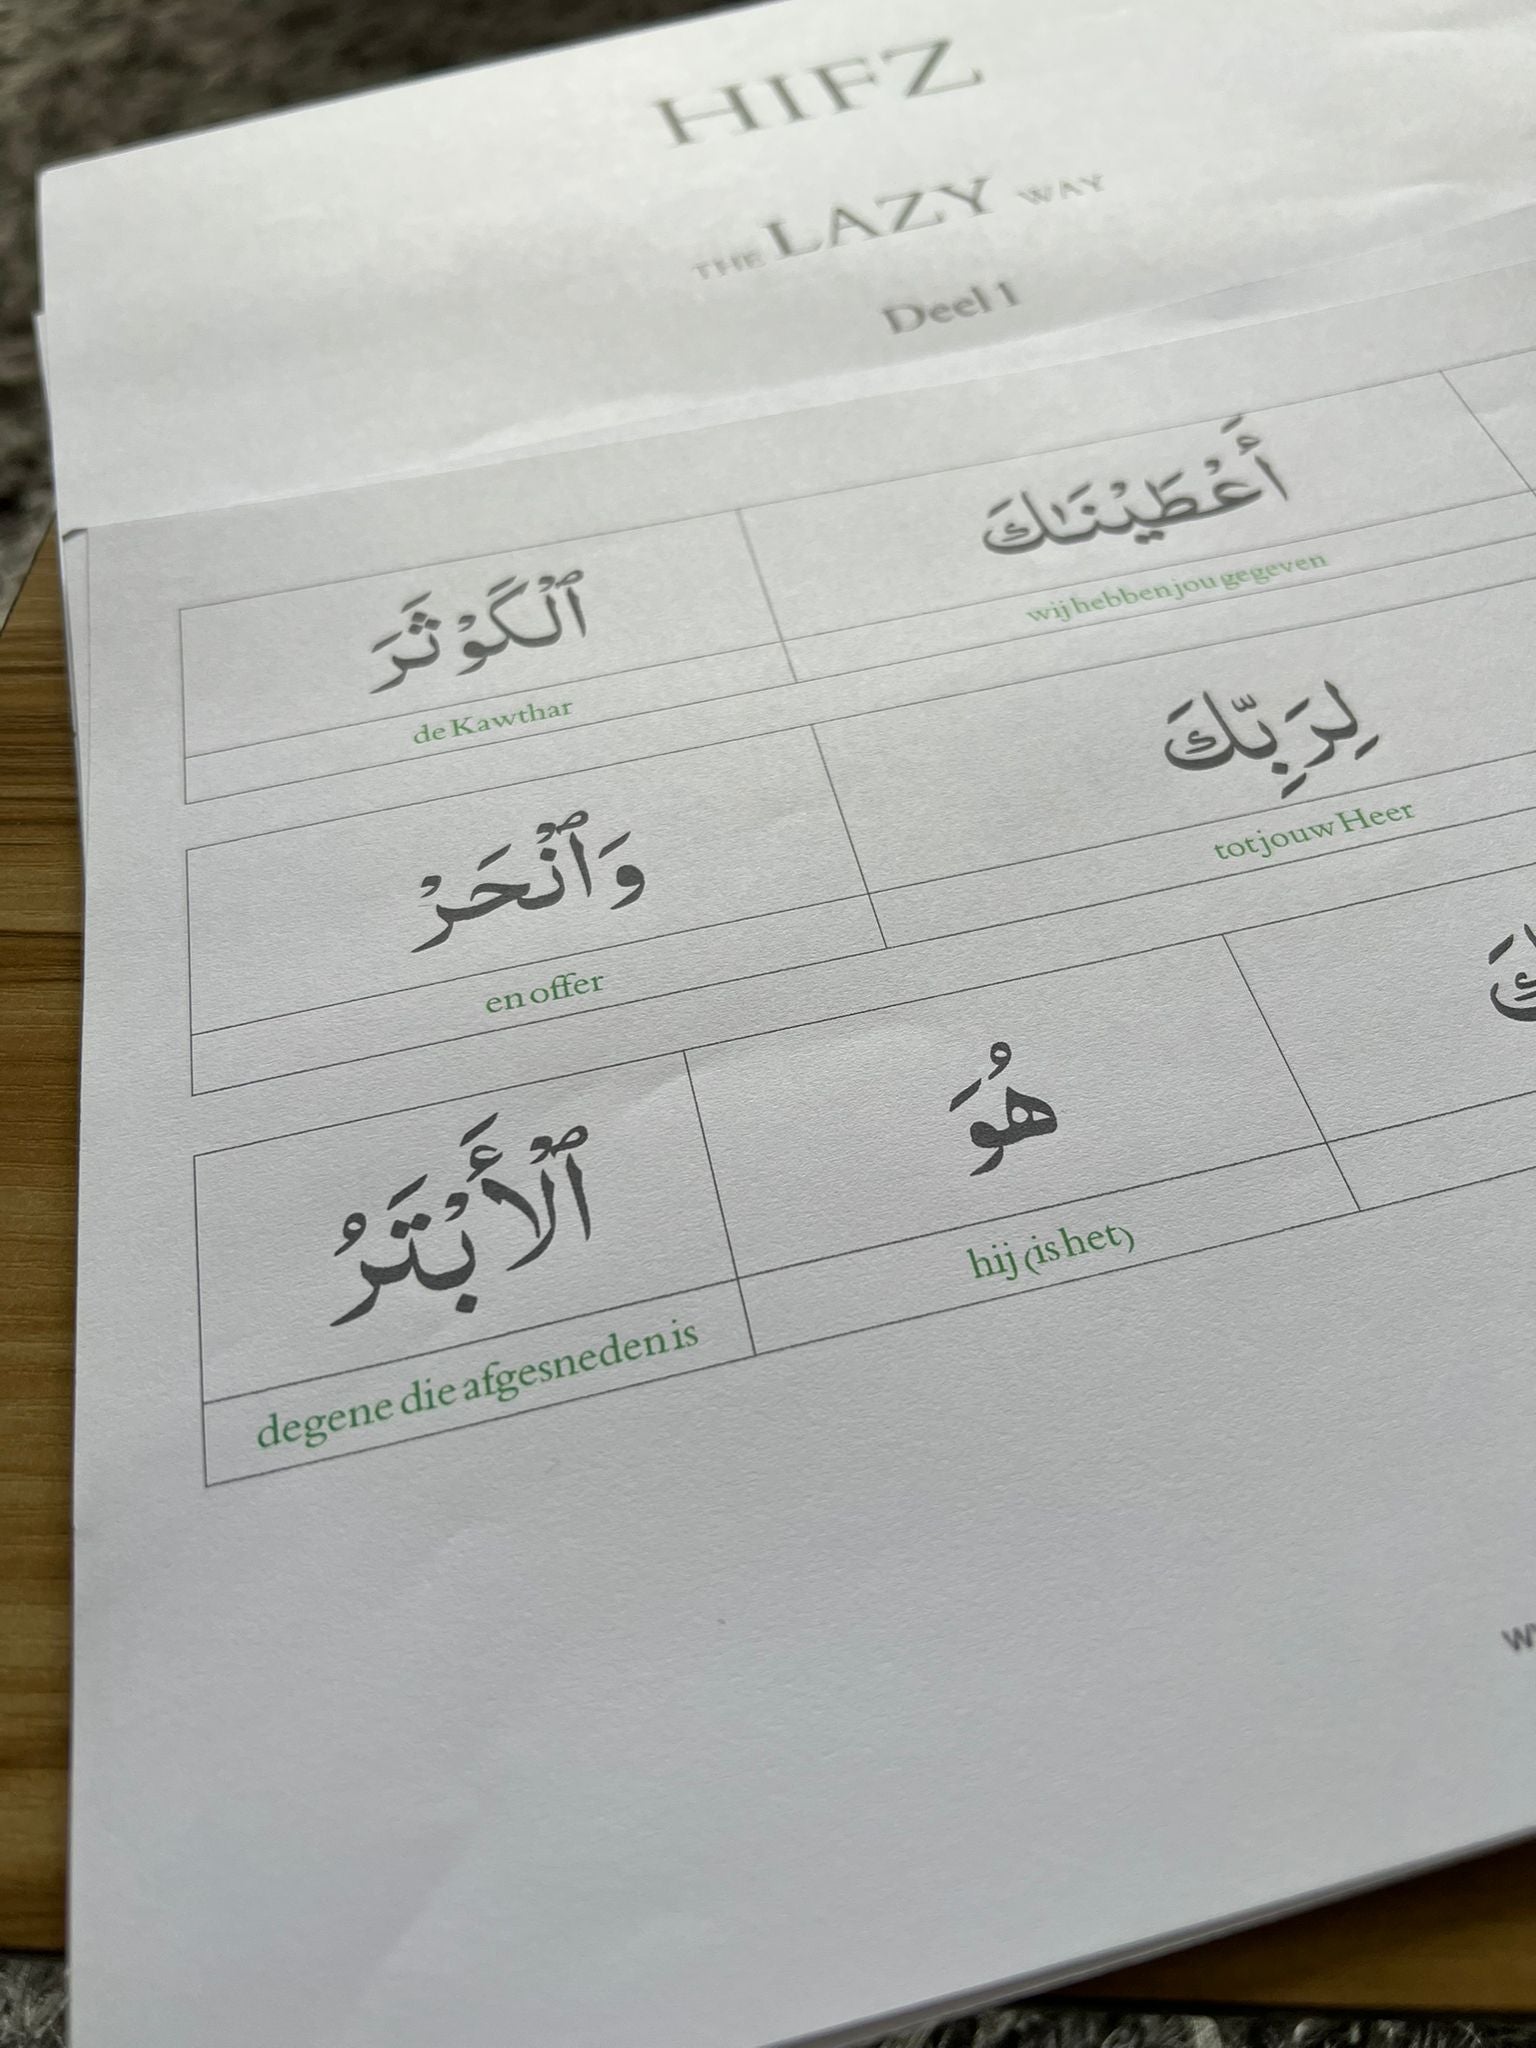 HIFZ
THE LAZY WAY
Deel 1
أَعْطَيْنَـٰكَ ٱلْكَوْثَرَ
wij hebben jou gegeven de Kawthar
لِرَبِّكَ وَٱنْحَرْ
tot jouw Heer en offer
هُوَ ٱلْأَبْتَرُ
hij (is het) degene die afgesneden is